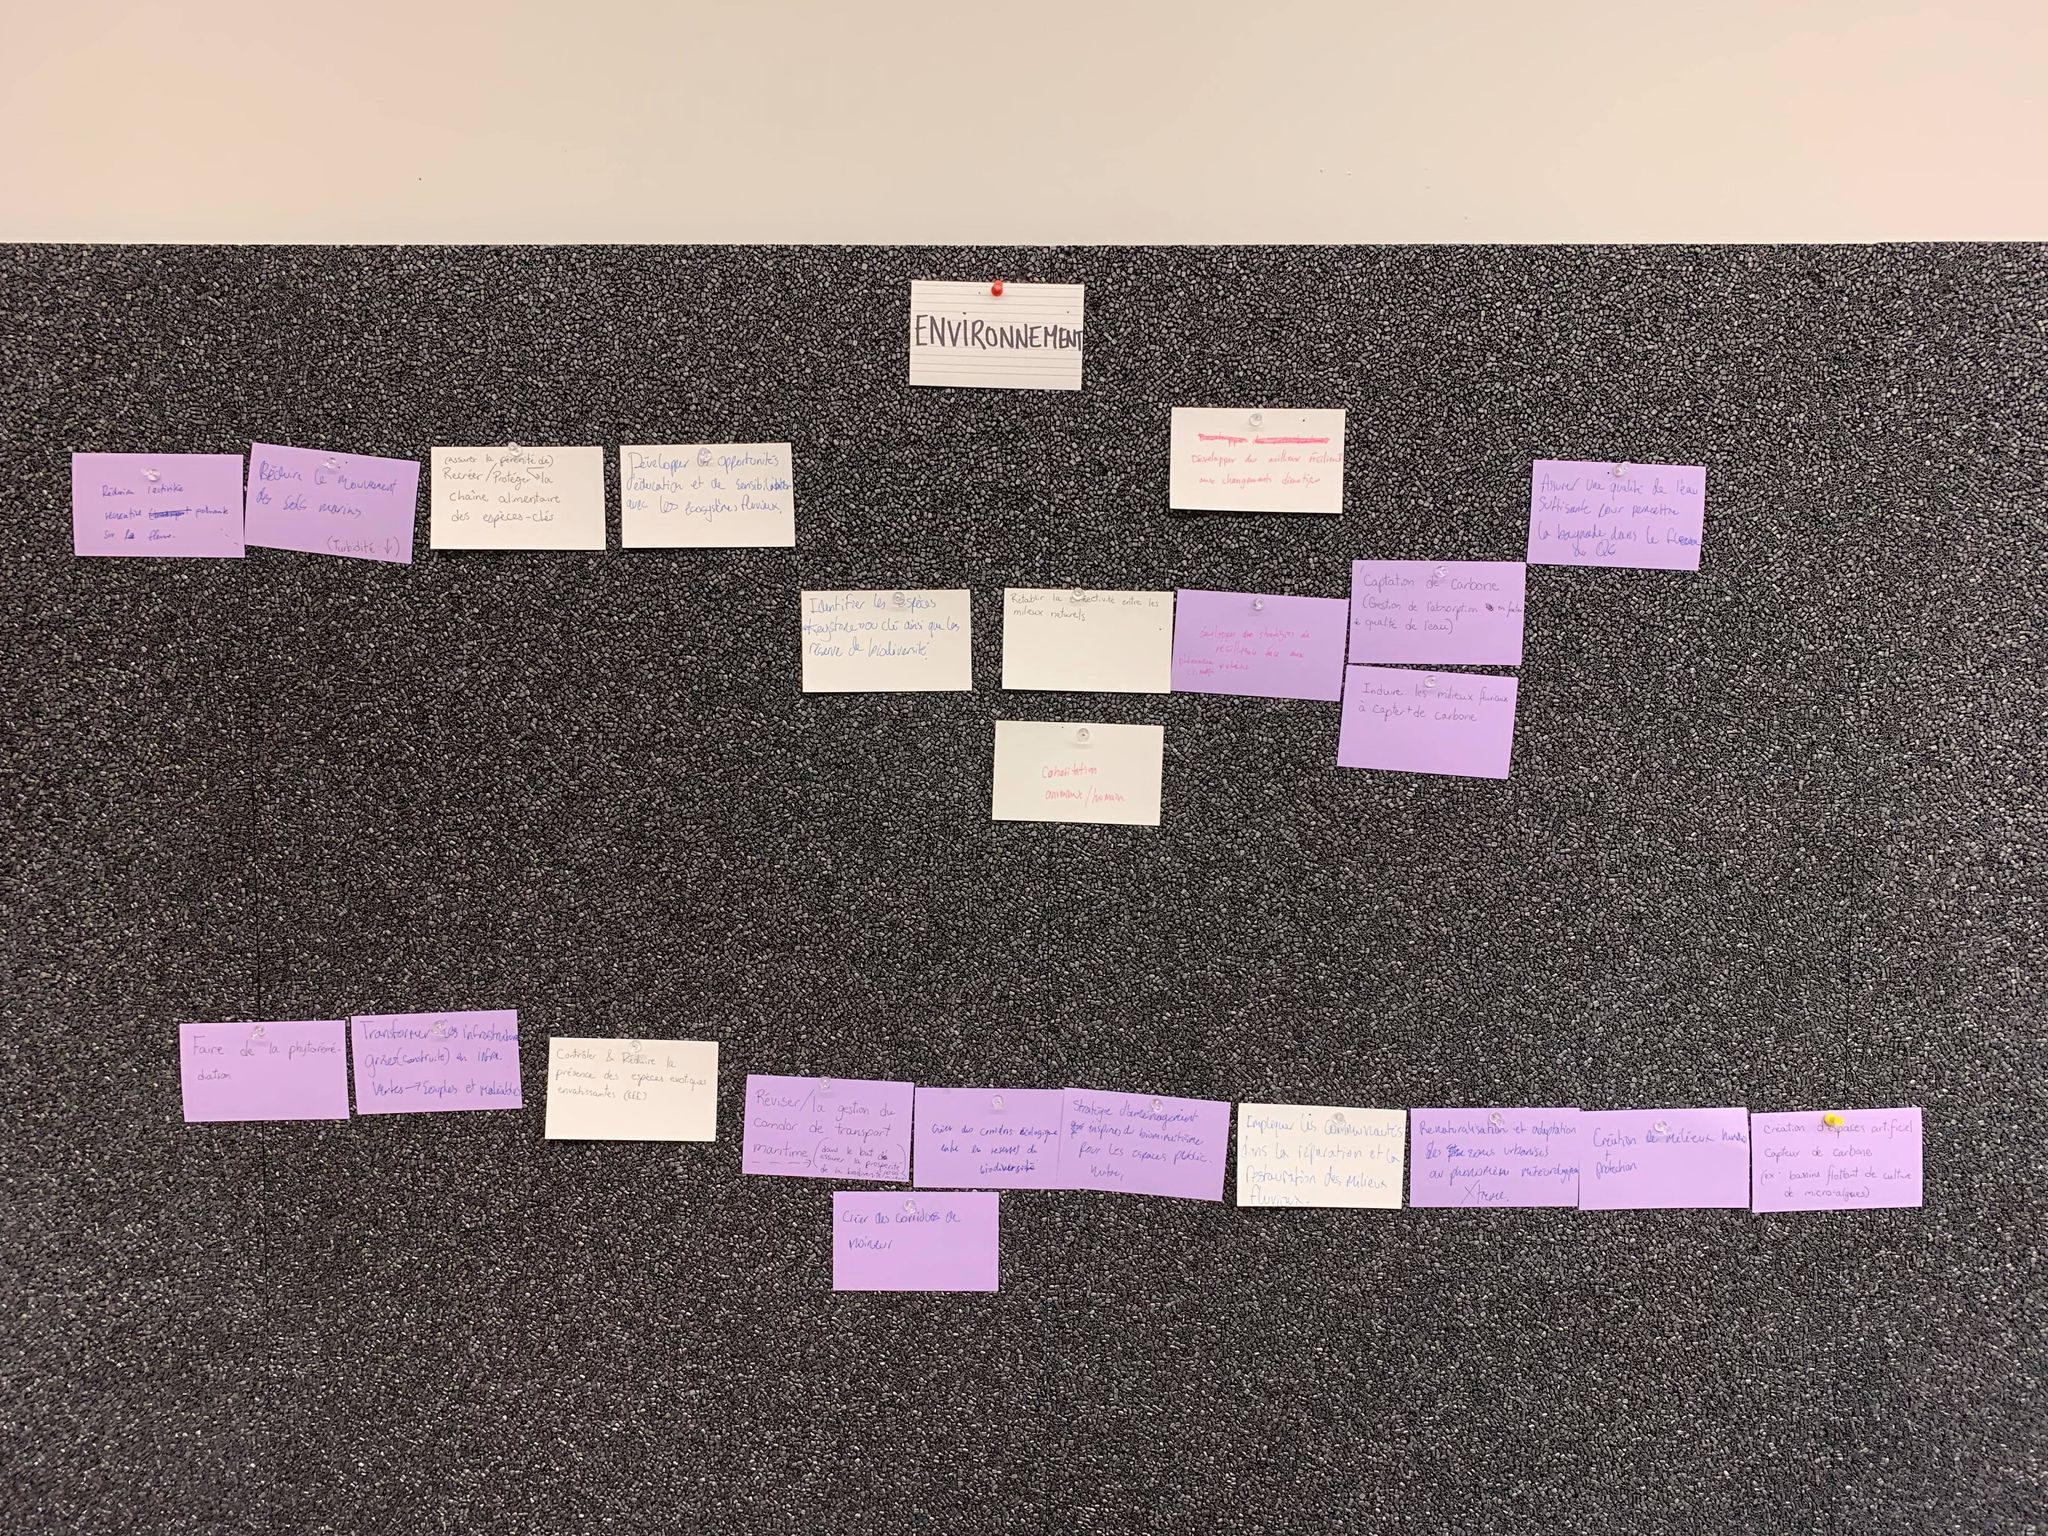 ENVIRONNEMENT
Développer des milieux résilient
aux changements climatiques
Réduire l'activité
polluante
sur le fleuve.
Réduire le mouvement
des sols marins
(Turbidité ↓)
(Assurer la pérennité de)
Recréer/Protéger la
chaîne alimentaire
des espèces-clés
Développer les opportunités
d'éducation et de sensibilisation
avec les écosystèmes fluviaux.
Assurer une qualité de l'eau
suffisante pour permettre
la baignade dans le fleuve
Identifier les espèces
keystone ou clé ainsi que les
réserve de biodiversité
Rétablir la connectivité entre les
milieux naturels
Développer des stratégies de
résilience face aux
Captation de carbone
(Gestion de l'absorption
qualité de l'eau)
Induire les milieux fluviaux
à capter + de carbone
Cohabitation
animaux/humain
Faire de la phytoremé-
diation
Transformer les infrastructures
grises (construite) en infra.
vertes → souples et malléables
Contrôler & Réduire la
présence des espèces exotiques
envahissantes (EEE)
Réviser/la gestion du
corridor de transport
maritime (dans le but de
assurer la prospérité
de la biodiversité
Créer des corridors écologique
entre les reserves de
biodiversité
Stratégie d'aménagement
inspirées du biomimétisme
pour les espaces public.
Impliquer les communautés
dans la réparation et la
restauration des milieux
fluviaux.
Renaturalisation et adaptation
des zones urbanisés
au phénomène météorologique
Xtreme.
Création de milieux humides
+
protection
Création d'espaces artificiel
capteur de carbone
(ex: bassins flottant de culture
de micro-algues)
Créer des corridors de
noirceur